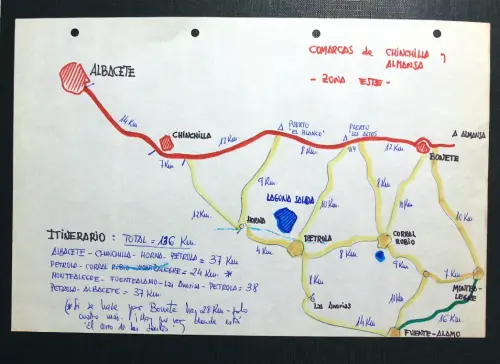 COMARCAS de CHINCHILLA y
ALMANSA
- ZONA ESTE -
ALBACETE
14 Km
CHINCHILLA
7 Km
12 Km
PUERTO
"EL BLANCO"
8 Km
PUERTO
LOS ALTOS
12 Km
A ALMANSA
BONETE
12 Km
9 Km
10 Km
8 Km
10 Km
LAGUNA SALADA
HORNA
4 Km
PETROLA
8 Km
CORRAL
RUBIO
9 Km
7 Km
MONTEA-
LEGRE
8 Km
Las Anorias
14 Km
16 Km
FUENTE-ALAMO
ITINERARIO: TOTAL = 136 Km.
ALBACETE - CHINCHILLA - HORNA - PETROLA = 37 Km
PETROLA - CORRAL RUBIO - MONTEALEGRE = 24 Km *
MONTEALEGRE - FUENTEALAMO - Las Anorias - PETROLA = 38
PETROLA - ALBACETE = 37 Km.
(* Si se hace por Bonete hay 28 Km - solo
cuatro más. ¡Hay que ver donde está